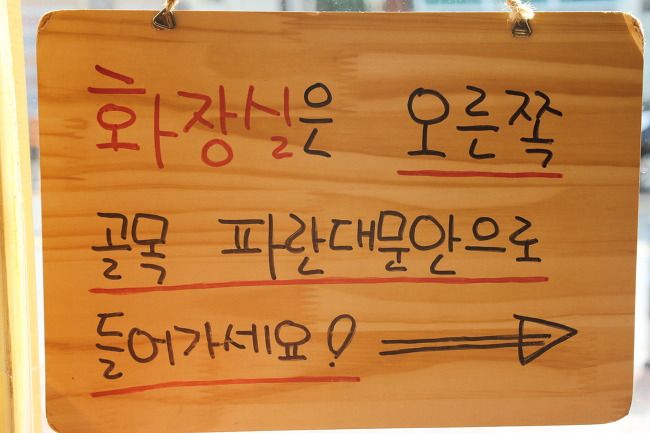 화장실은 오른쪽
골목 파란대문안으로
들어가세요!